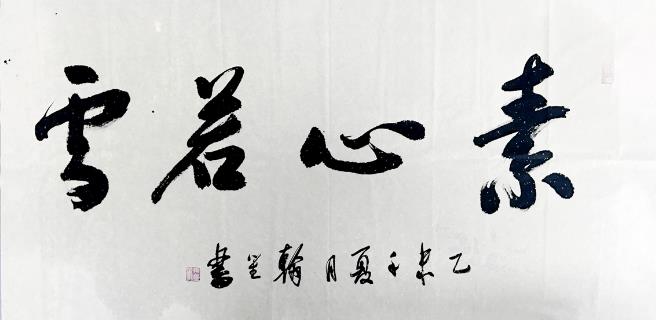 素心若雪
乙未 夏月翰 書